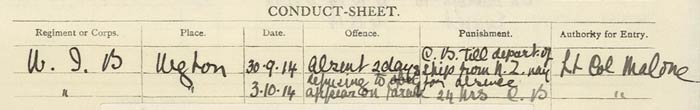 CONDUCT-SHEET.
Regiment or Corps. Place. Date. Offence. Punishment. Authority for Entry.
W. I. B Wgton 30-9-14 Absent 2 days C. B. Till depart. of ships from N.Z. Lt Col Malone
for absence
" " 3-10-14 refusing to appear on parade 24 hrs C B